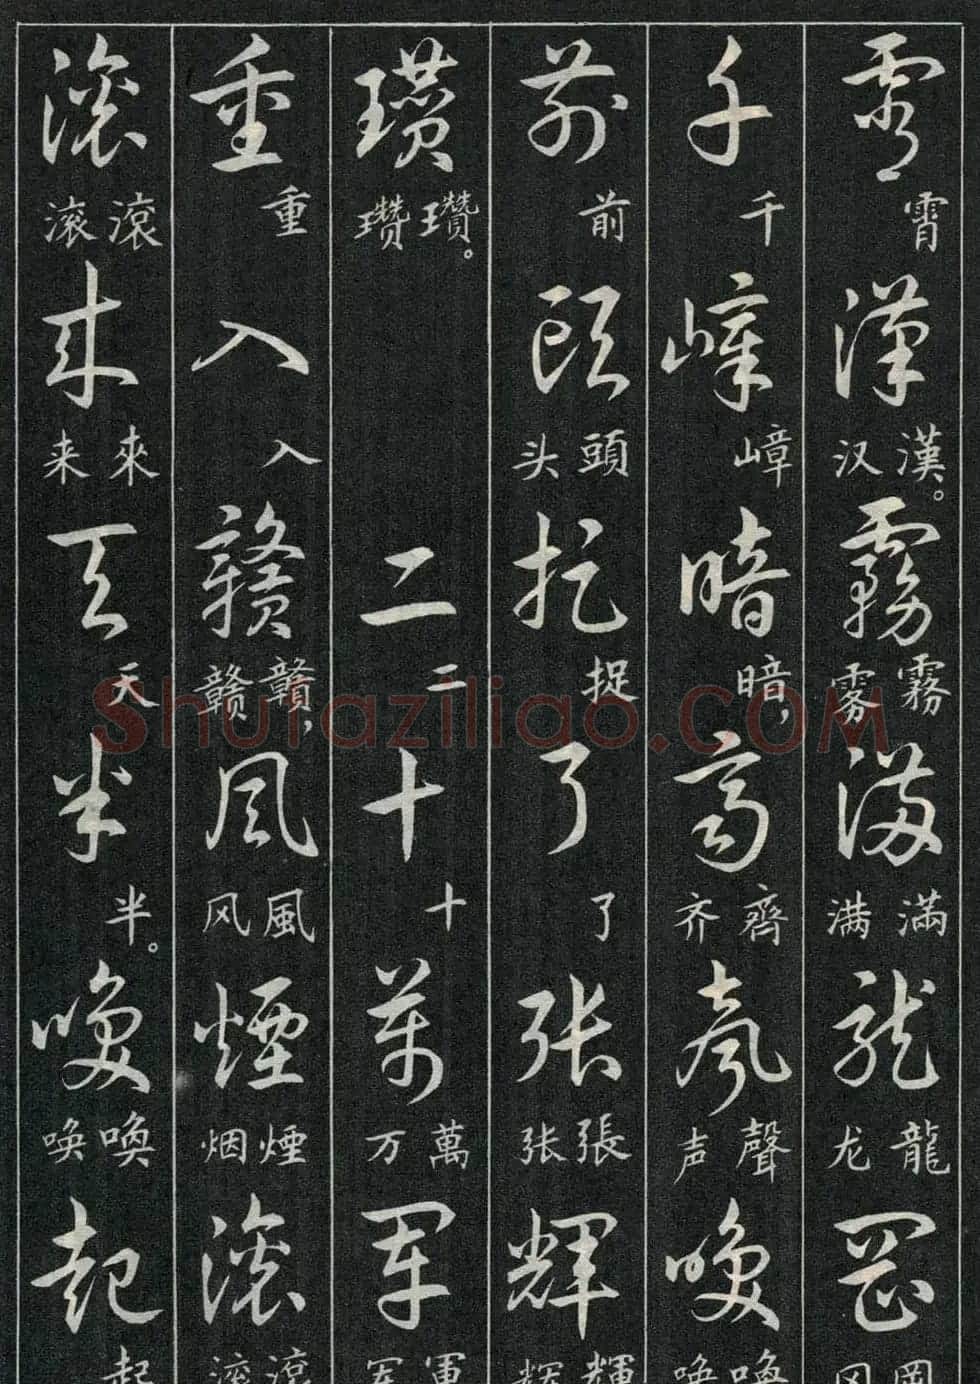 霄霄漢漢。汉霧霧雾滿滿满龍龍龙岡岡冈
千千嶂嶂暗暗，齊齊齐聲聲声喚喚唤
前前頭頭头捉捉了了張張张輝輝辉
瓚瓚。瓒二二十十萬萬万軍軍军
重重入入贛贛，赣風風风煙煙烟滾滾滚
滾滾滚來來来天天半半。喚喚唤起起
Shufaziliao.COM